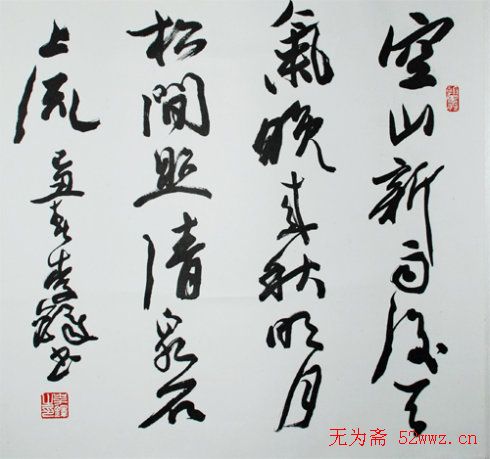 空山新雨後天
氣晚来秋明月
松間照清泉石
上流
春李鐸书
无为斋 52wwz.cn